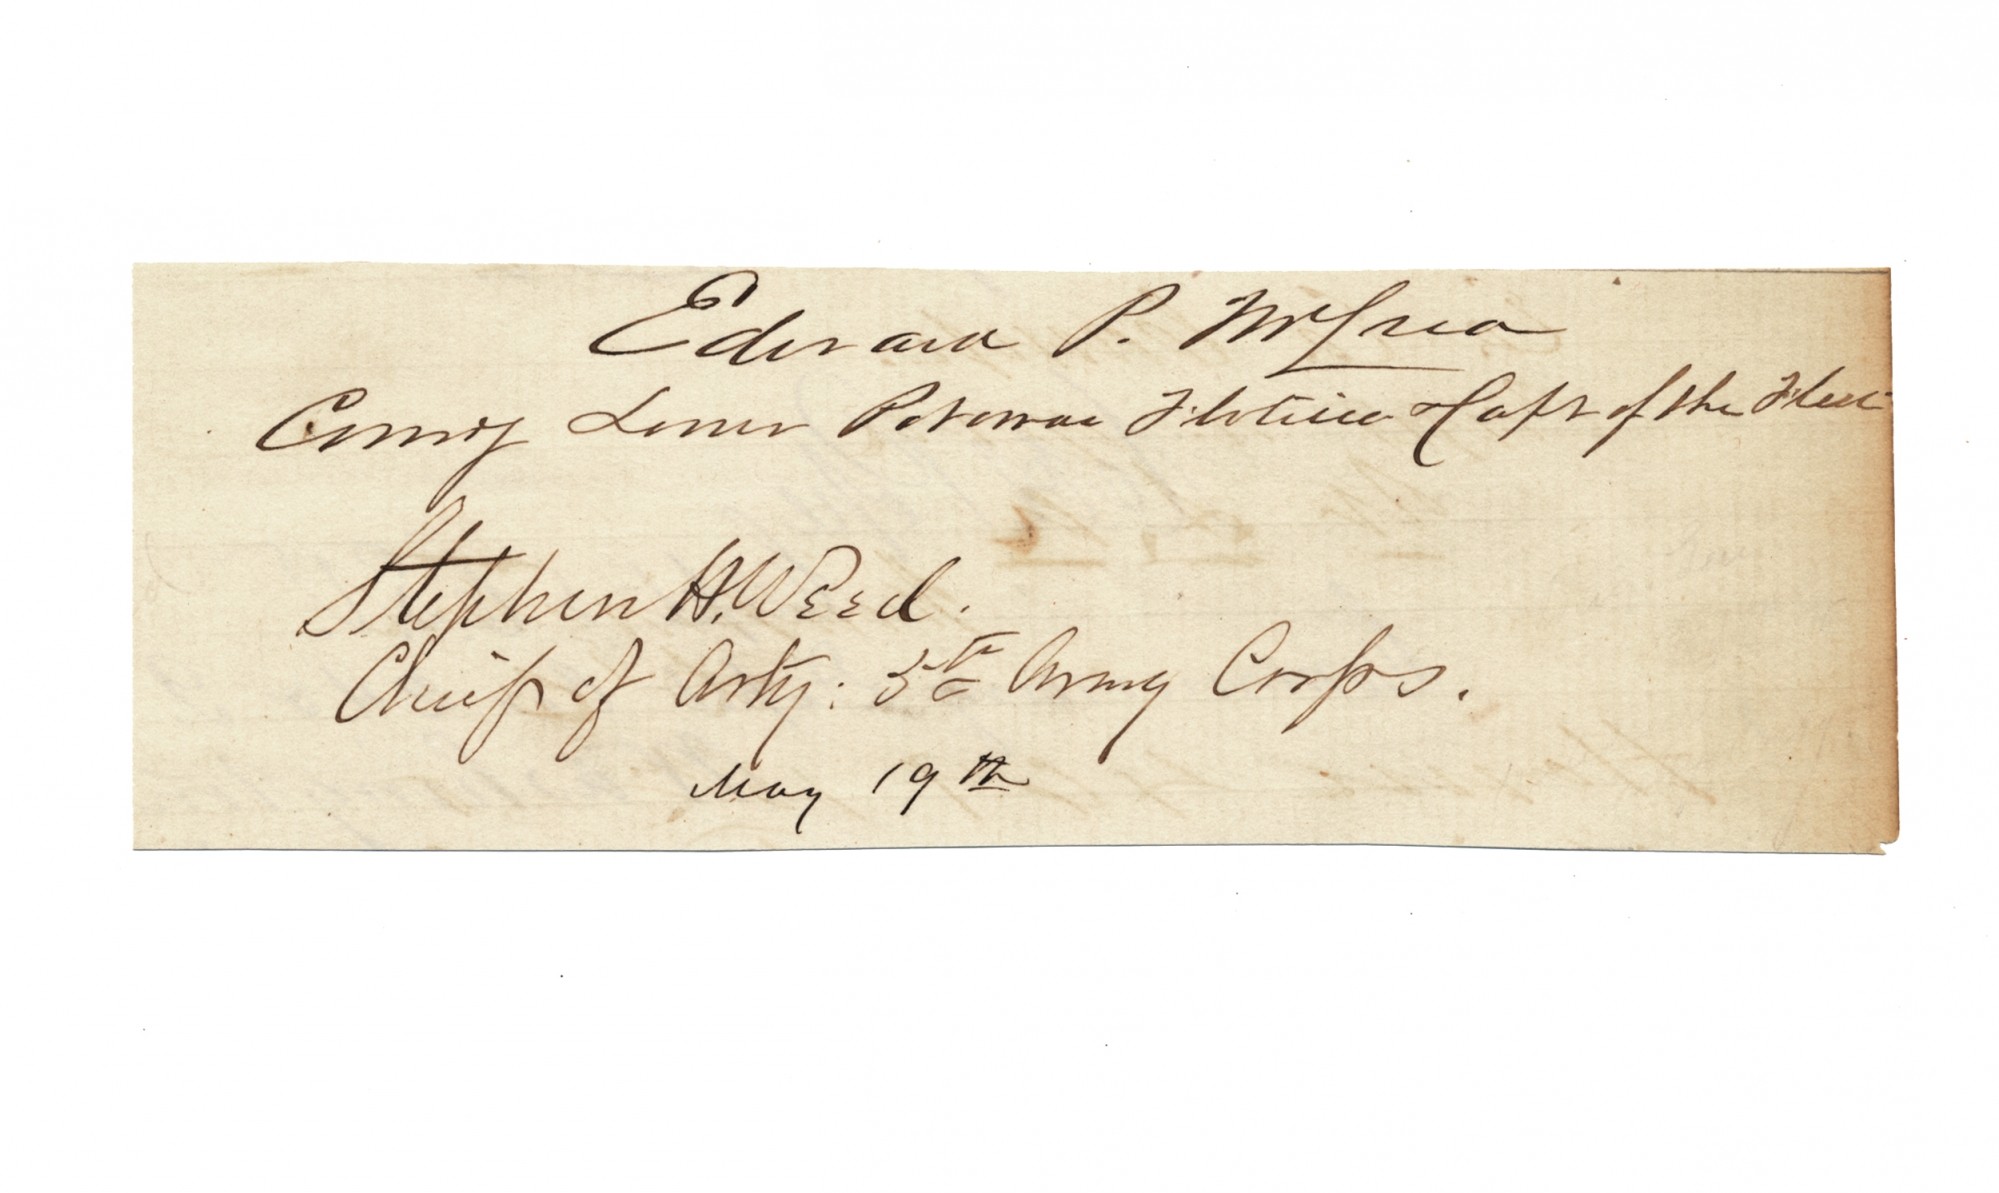 Edward P. McCrea
Comdg Lower Potomac Flotilla & Capt of the Fleet
Stephen H. Weed.
Chief of Arty: 5th Army Corps.
May 19th